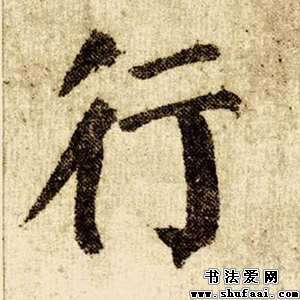 行
书法爱网
www.shufaai.com